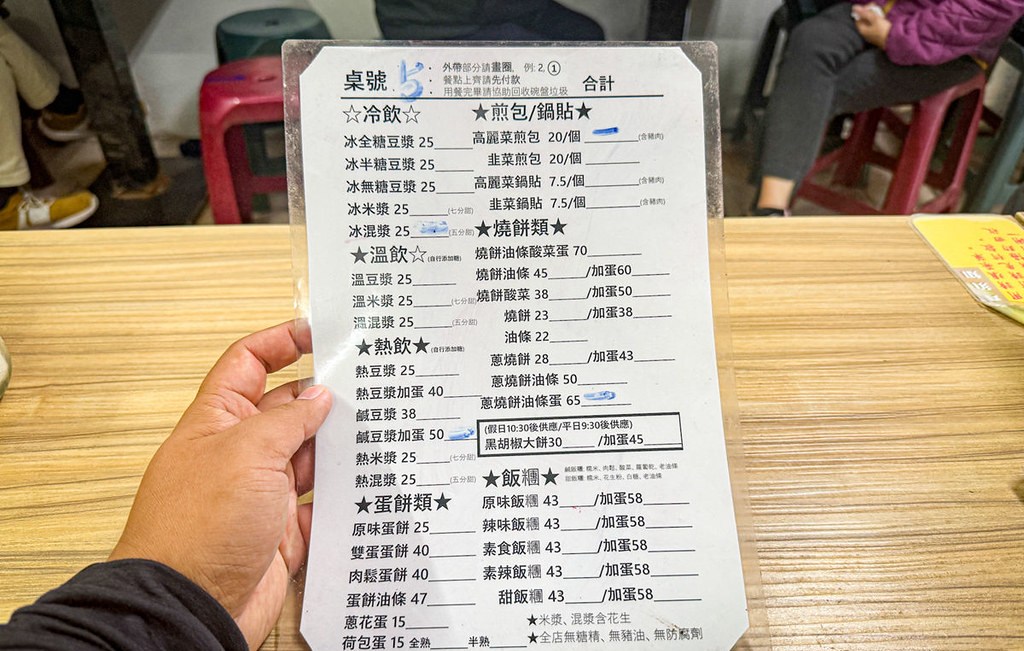 桌號 5
· 外帶部分請畫圈, 例: 2, ①
· 餐點上齊請先付款
· 用餐完畢請協助回收碗盤垃圾
合計
☆冷飲☆
冰全糖豆漿 25____
冰半糖豆漿 25____
冰無糖豆漿 25____
冰米漿 25____(七分甜)
冰混漿 25____(五分甜)
★溫飲☆(自行添加糖)
溫豆漿 25____
溫米漿 25____(七分甜)
溫混漿 25____(五分甜)
★熱飲★(自行添加糖)
熱豆漿 25____
熱豆漿加蛋 40____
鹹豆漿 38____
鹹豆漿加蛋 50____
熱米漿 25____(七分甜)
熱混漿 25____(五分甜)
★蛋餅類★
原味蛋餅 25____
雙蛋蛋餅 40____
肉鬆蛋餅 40____
蛋餅油條 47____
蔥花蛋 15____
荷包蛋 15 全熟____半熟____
★煎包/鍋貼★
高麗菜煎包 20/個____(含豬肉)
韭菜煎包 20/個____
高麗菜鍋貼 7.5/個____(含豬肉)
韭菜鍋貼 7.5/個____(含豬肉)
★燒餅類★
燒餅油條酸菜蛋 70____
燒餅油條 45____/加蛋60____
燒餅酸菜 38____/加蛋50____
燒餅 23____/加蛋38____
油條 22____
蔥燒餅 28____/加蛋43____
蔥燒餅油條 50____
蔥燒餅油條蛋 65____
(假日10:30後供應/平日9:30後供應)
黑胡椒大餅30____/加蛋45____
★飯糰★
鹹飯糰: 糯米、肉鬆、酸菜、蘿蔔乾、老油條
甜飯糰: 糯米、花生粉、白糖、老油條
原味飯糰 43____/加蛋58____
辣味飯糰 43____/加蛋58____
素食飯糰 43____/加蛋58____
素辣飯糰 43____/加蛋58____
甜飯糰 43____/加蛋58____
★米漿、混漿含花生
★全店無糖精、無豬油、無防腐劑